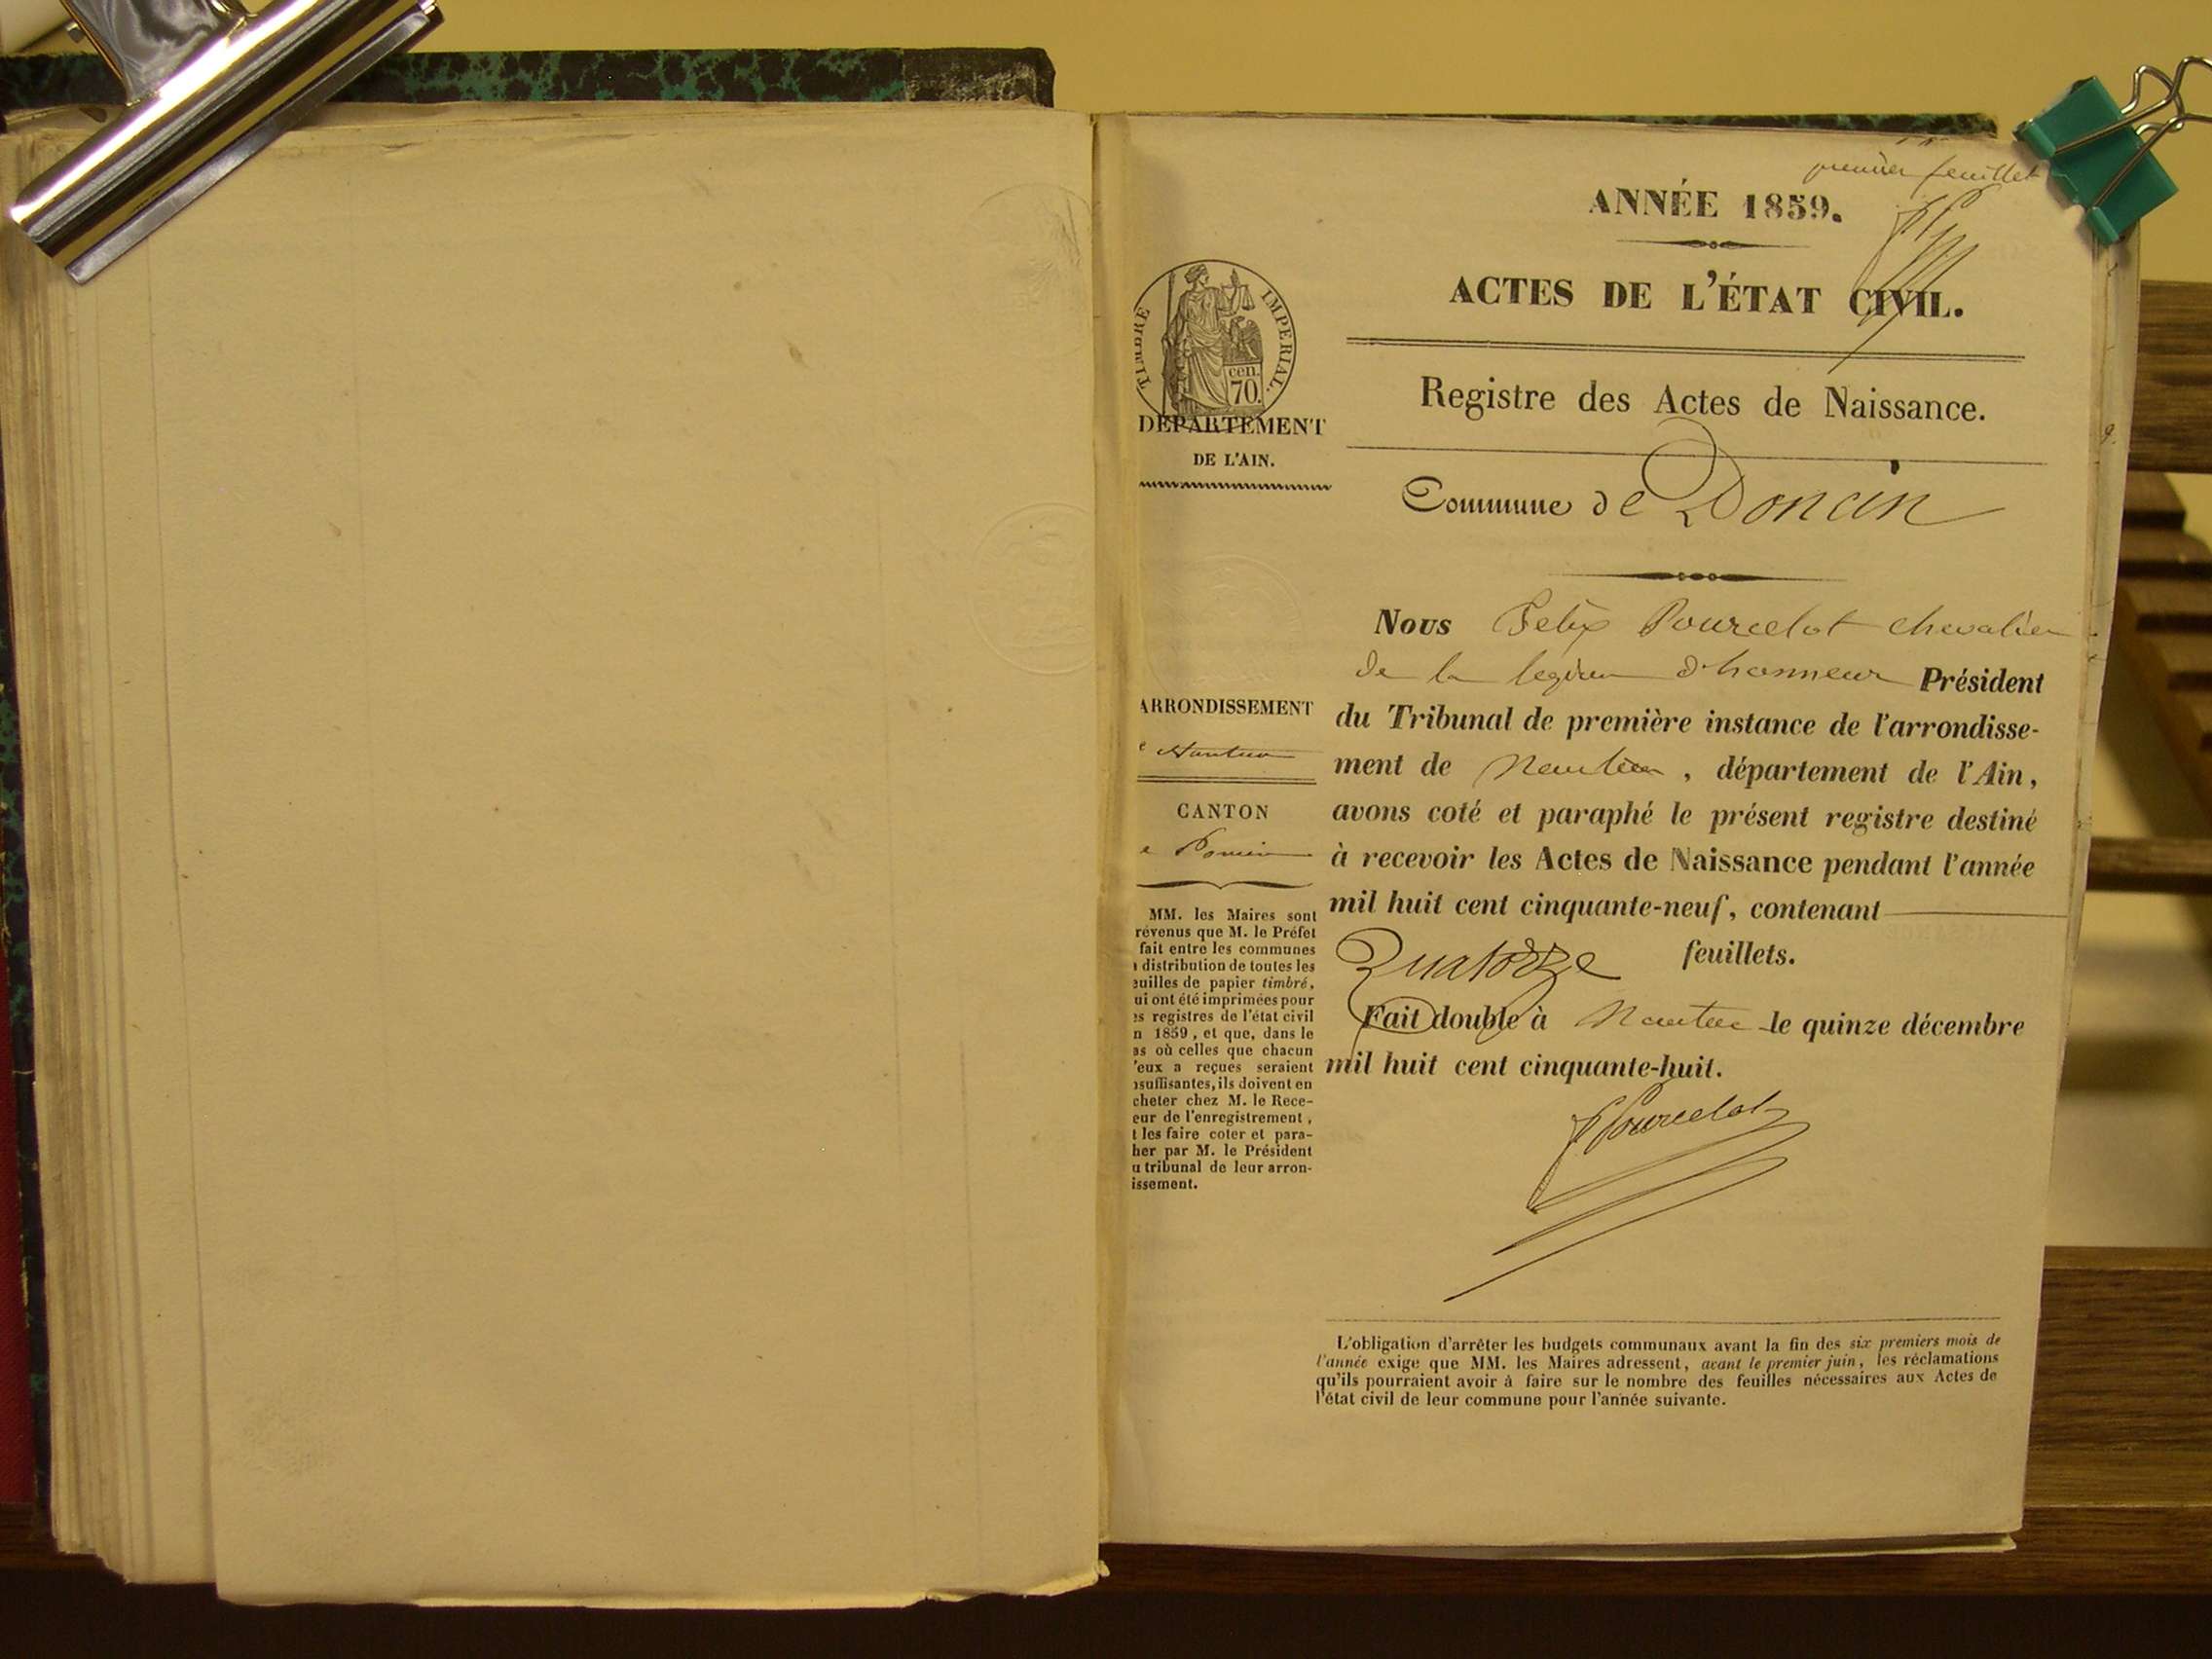 premier feuillet
ANNÉE 1859.
ACTES DE L'ÉTAT CIVIL.
TIMBRE IMPERIAL.
cen.
70.
DÉPARTEMENT
DE L'AIN.
Registre des Actes de Naissance.
Commune de Poncin
Nous Felix Pourcelot chevalier
de la legion d'honneur Président
du Tribunal de première instance de l'arrondisse-
ment de Nantua, département de l'Ain,
avons coté et paraphé le présent registre destiné
à recevoir les Actes de Naissance pendant l'année
mil huit cent cinquante-neuf, contenant
Quatorze feuillets.
Fait double à Nantua le quinze décembre
mil huit cent cinquante-huit.
FPourcelot
ARRONDISSEMENT
e Nantua
CANTON
e Poncin
MM. les Maires sont
révenus que M. le Préfet
fait entre les communes
a distribution de toutes les
euilles de papier timbré,
ui ont été imprimées pour
es registres de l'état civil
n 1859, et que, dans le
as où celles que chacun
'eux a reçues seraient
nsuffisantes, ils doivent en
cheter chez M. le Rece-
eur de l'enregistrement,
t les faire coter et para-
her par M. le Président
u tribunal de leur arron-
issement.
L'obligation d'arrêter les budgets communaux avant la fin des six premiers mois de
l'année exige que MM. les Maires adressent, avant le premier juin, les réclamations
qu'ils pourraient avoir à faire sur le nombre des feuilles nécessaires aux Actes de
l'état civil de leur commune pour l'année suivante.